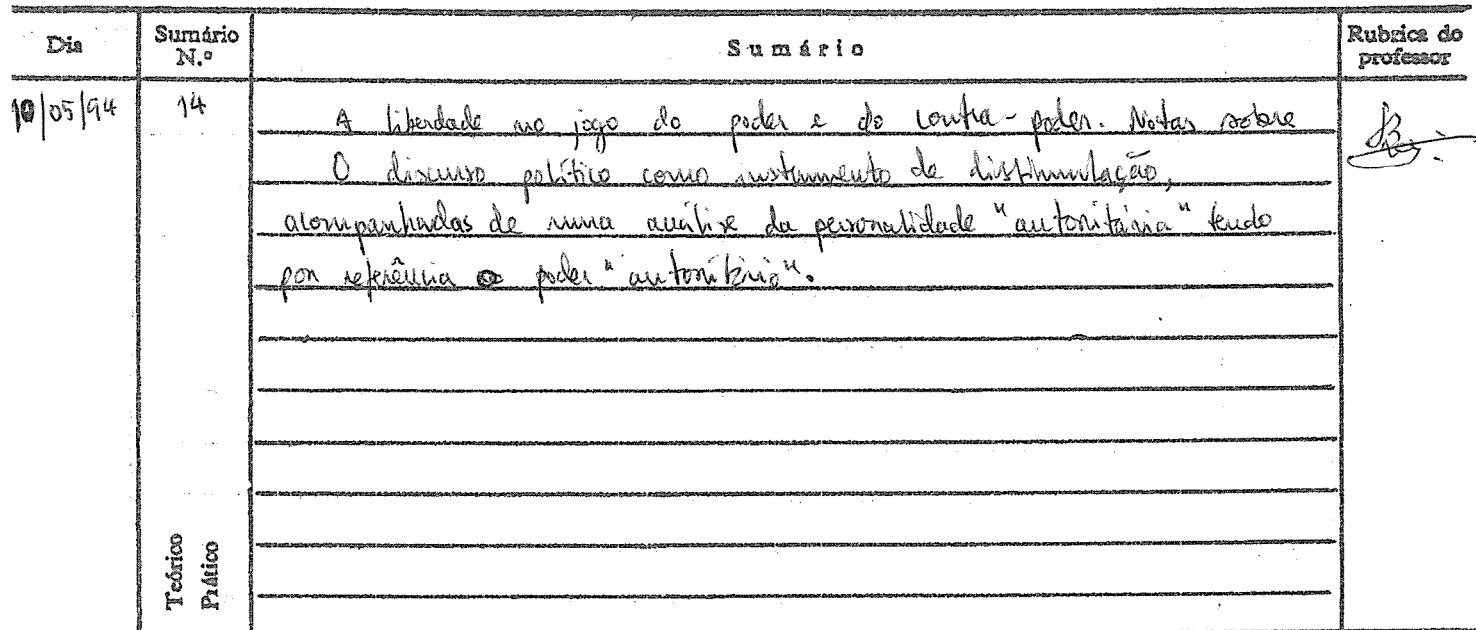 Dia
Sumário N.º
Sumário
Rubrica do professor
10/05/94
14
A liberdade no jogo do poder e do contra-poder. Notas sobre
O discurso político como instrumento de dissimulação,
acompanhadas de uma análise da personalidade "autoritária" tendo
por referência o poder "autoritário".
Teórico
Prático